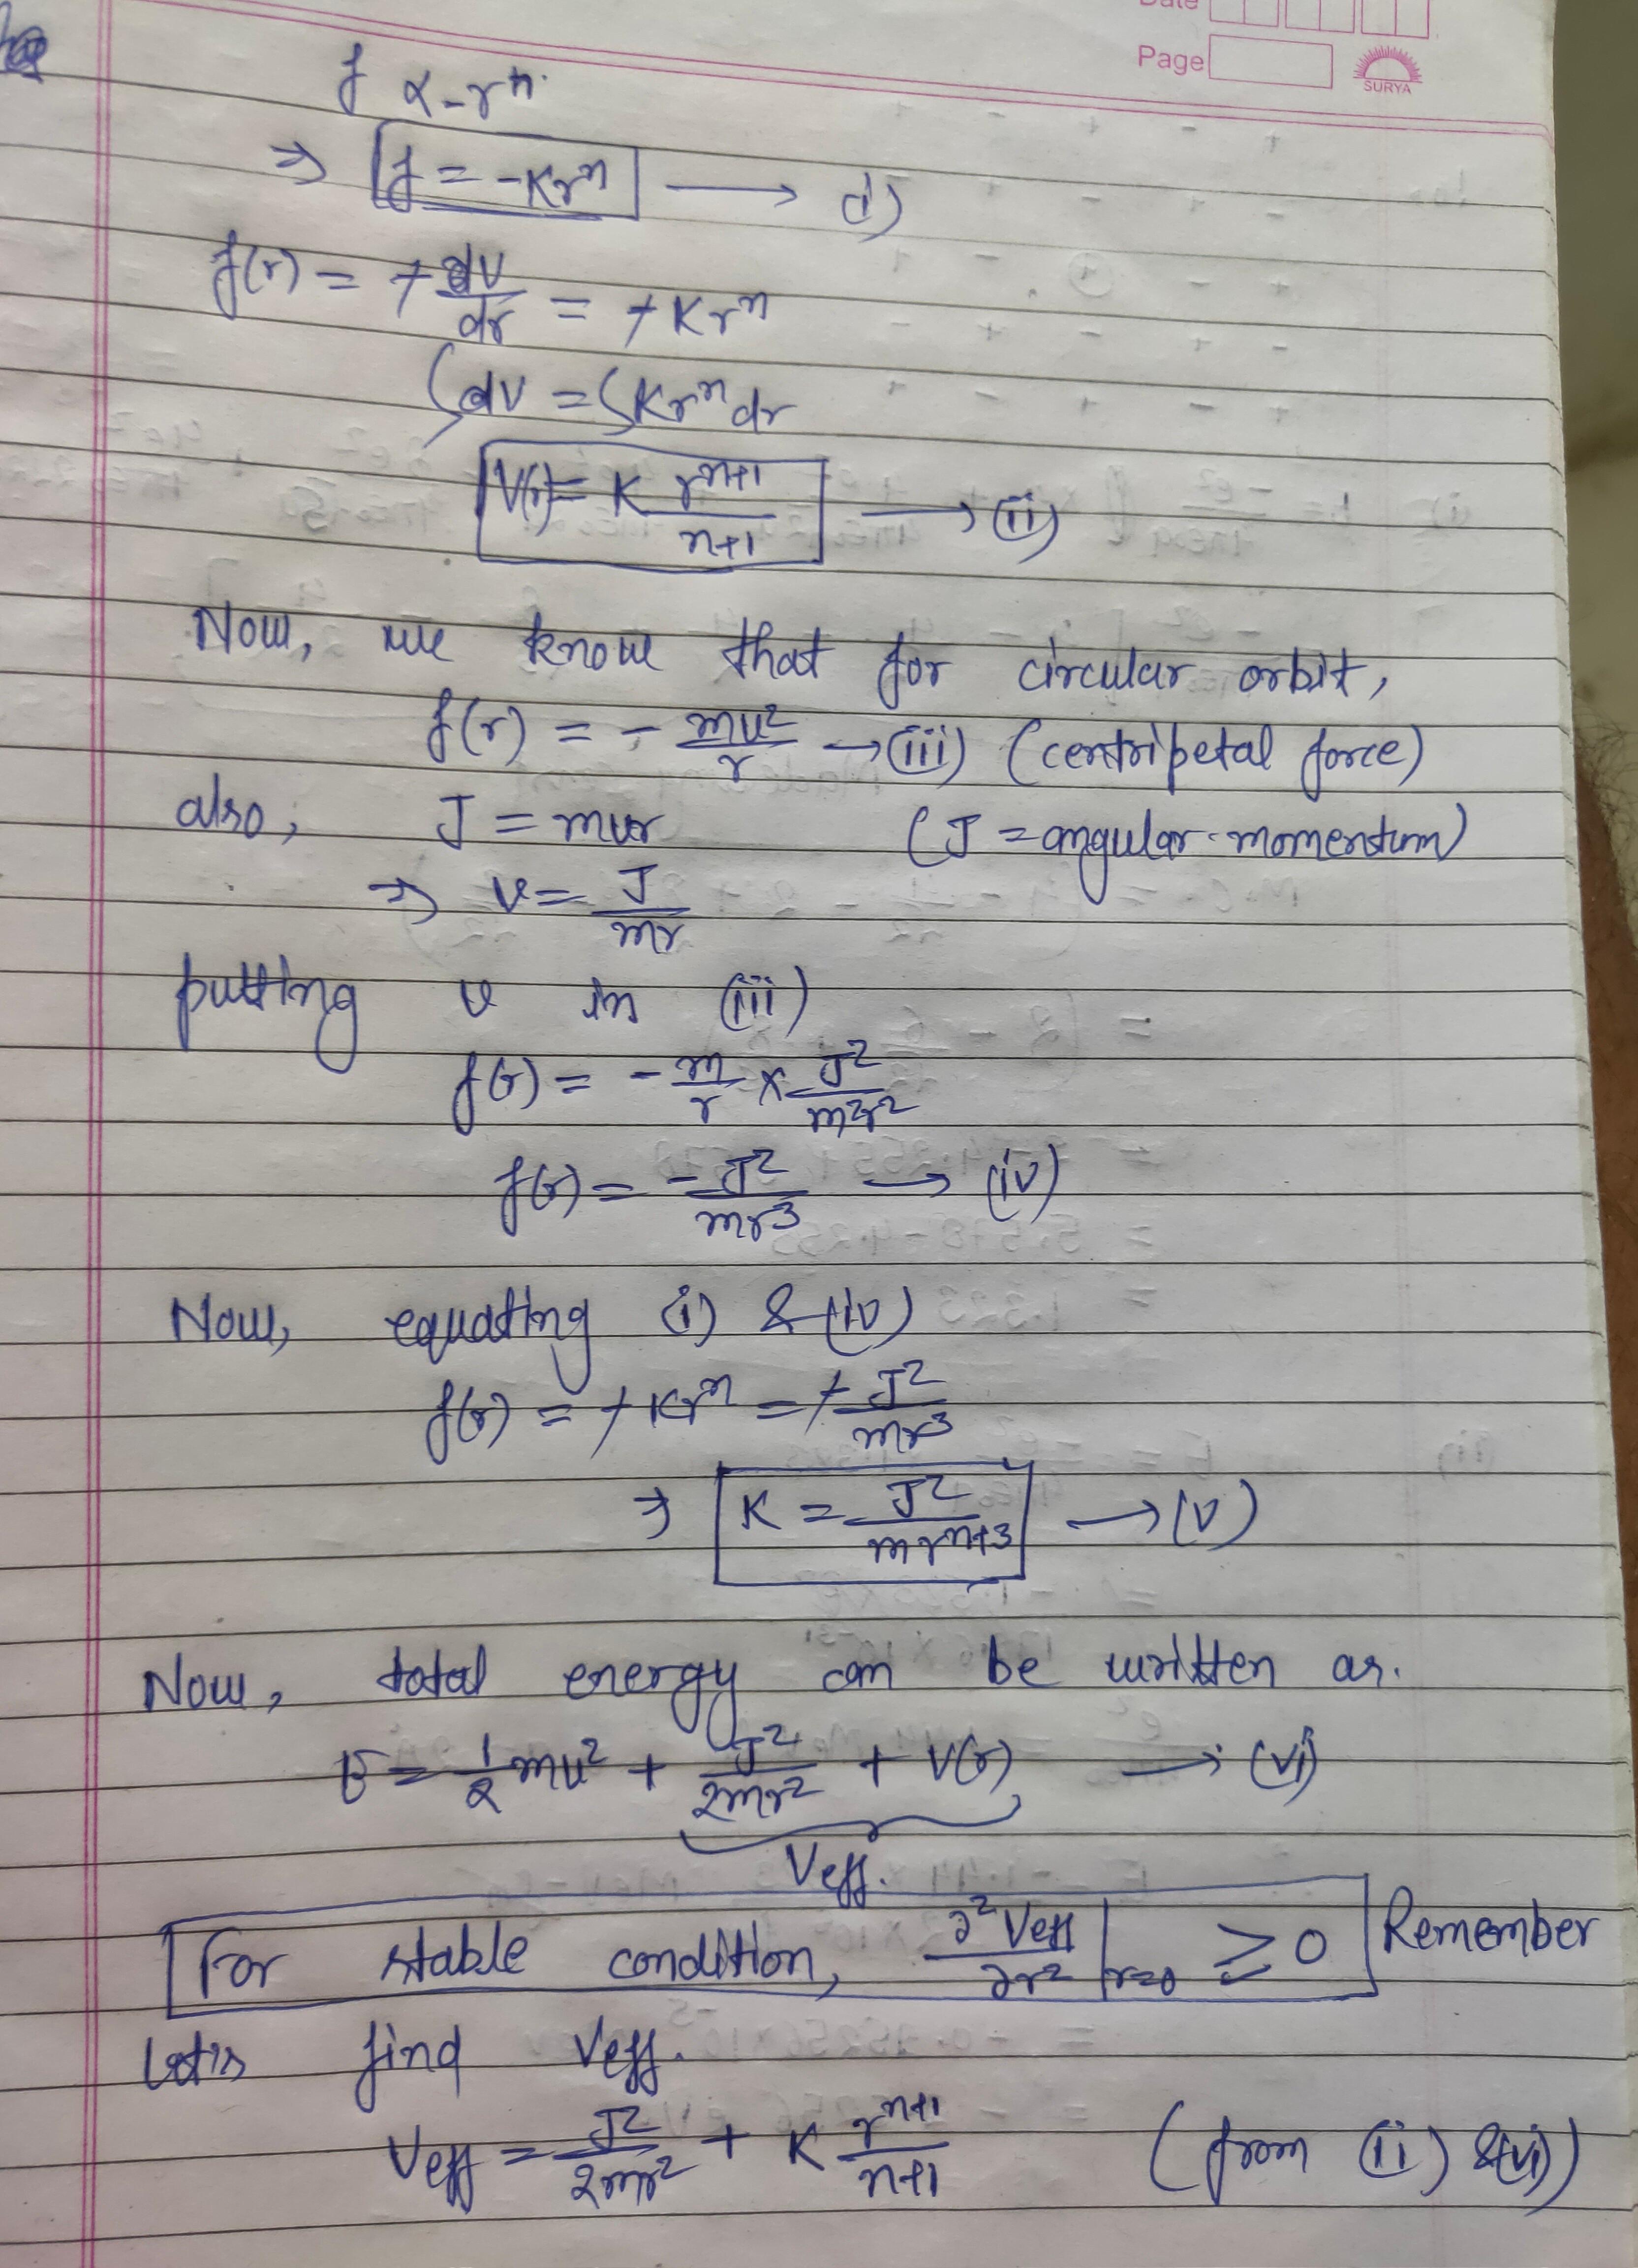 Date
Page
SURYA
f α -rⁿ
⇒ f = -Krⁿ → (i)
f(r) = + dV/dr = + Krⁿ
∫dV = ∫Krⁿdr
V(r) = K rⁿ⁺¹/n+1 → (ii)
Now, we know that for circular orbit,
f(r) = - mv²/r → (iii) (centripetal force)
also, J = mvr (J = angular momentum)
⇒ v = J/mr
putting v in (iii)
f(r) = - m/r × J²/m²r²
f(r) = - J²/mr³ → (iv)
Now, equating (i) & (iv)
f(r) = + Krⁿ = + J²/mr³
⇒ K = J²/mrⁿ⁺³ → (v)
Now, total energy can be written as.
E = 1/2 mv² + J²/2mr² + V(r) → (vi)
Veff.
For stable condition, ∂²Veff/∂r² |r=0 ≥ 0 Remember
Let's find Veff.
Veff = J²/2mr² + K rⁿ⁺¹/n+1 (from (ii) & (vi))